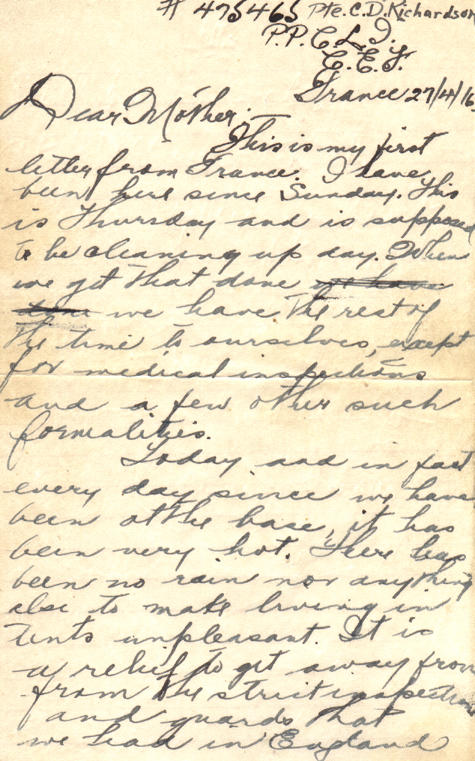 # 475465 Pte. C. D. Richardson
P.P.C.L.I.
C.E.F.
France 27/4/16
Dear Mother.
This is my first
letter from France. I have
been here since Sunday. This
is Thursday and is supposed
to be cleaning up day. When
we get that done or have
we have the rest of
the time to ourselves, except
for medical inspections
and a few other such
formalities.
Today and in fact
every day since we have
been at the base, it has
been very hot. There has
been no rain nor anything
else to make living in
tents unpleasant. It is
a relief to get away from
from the strict inspections
and guards that
we had in England